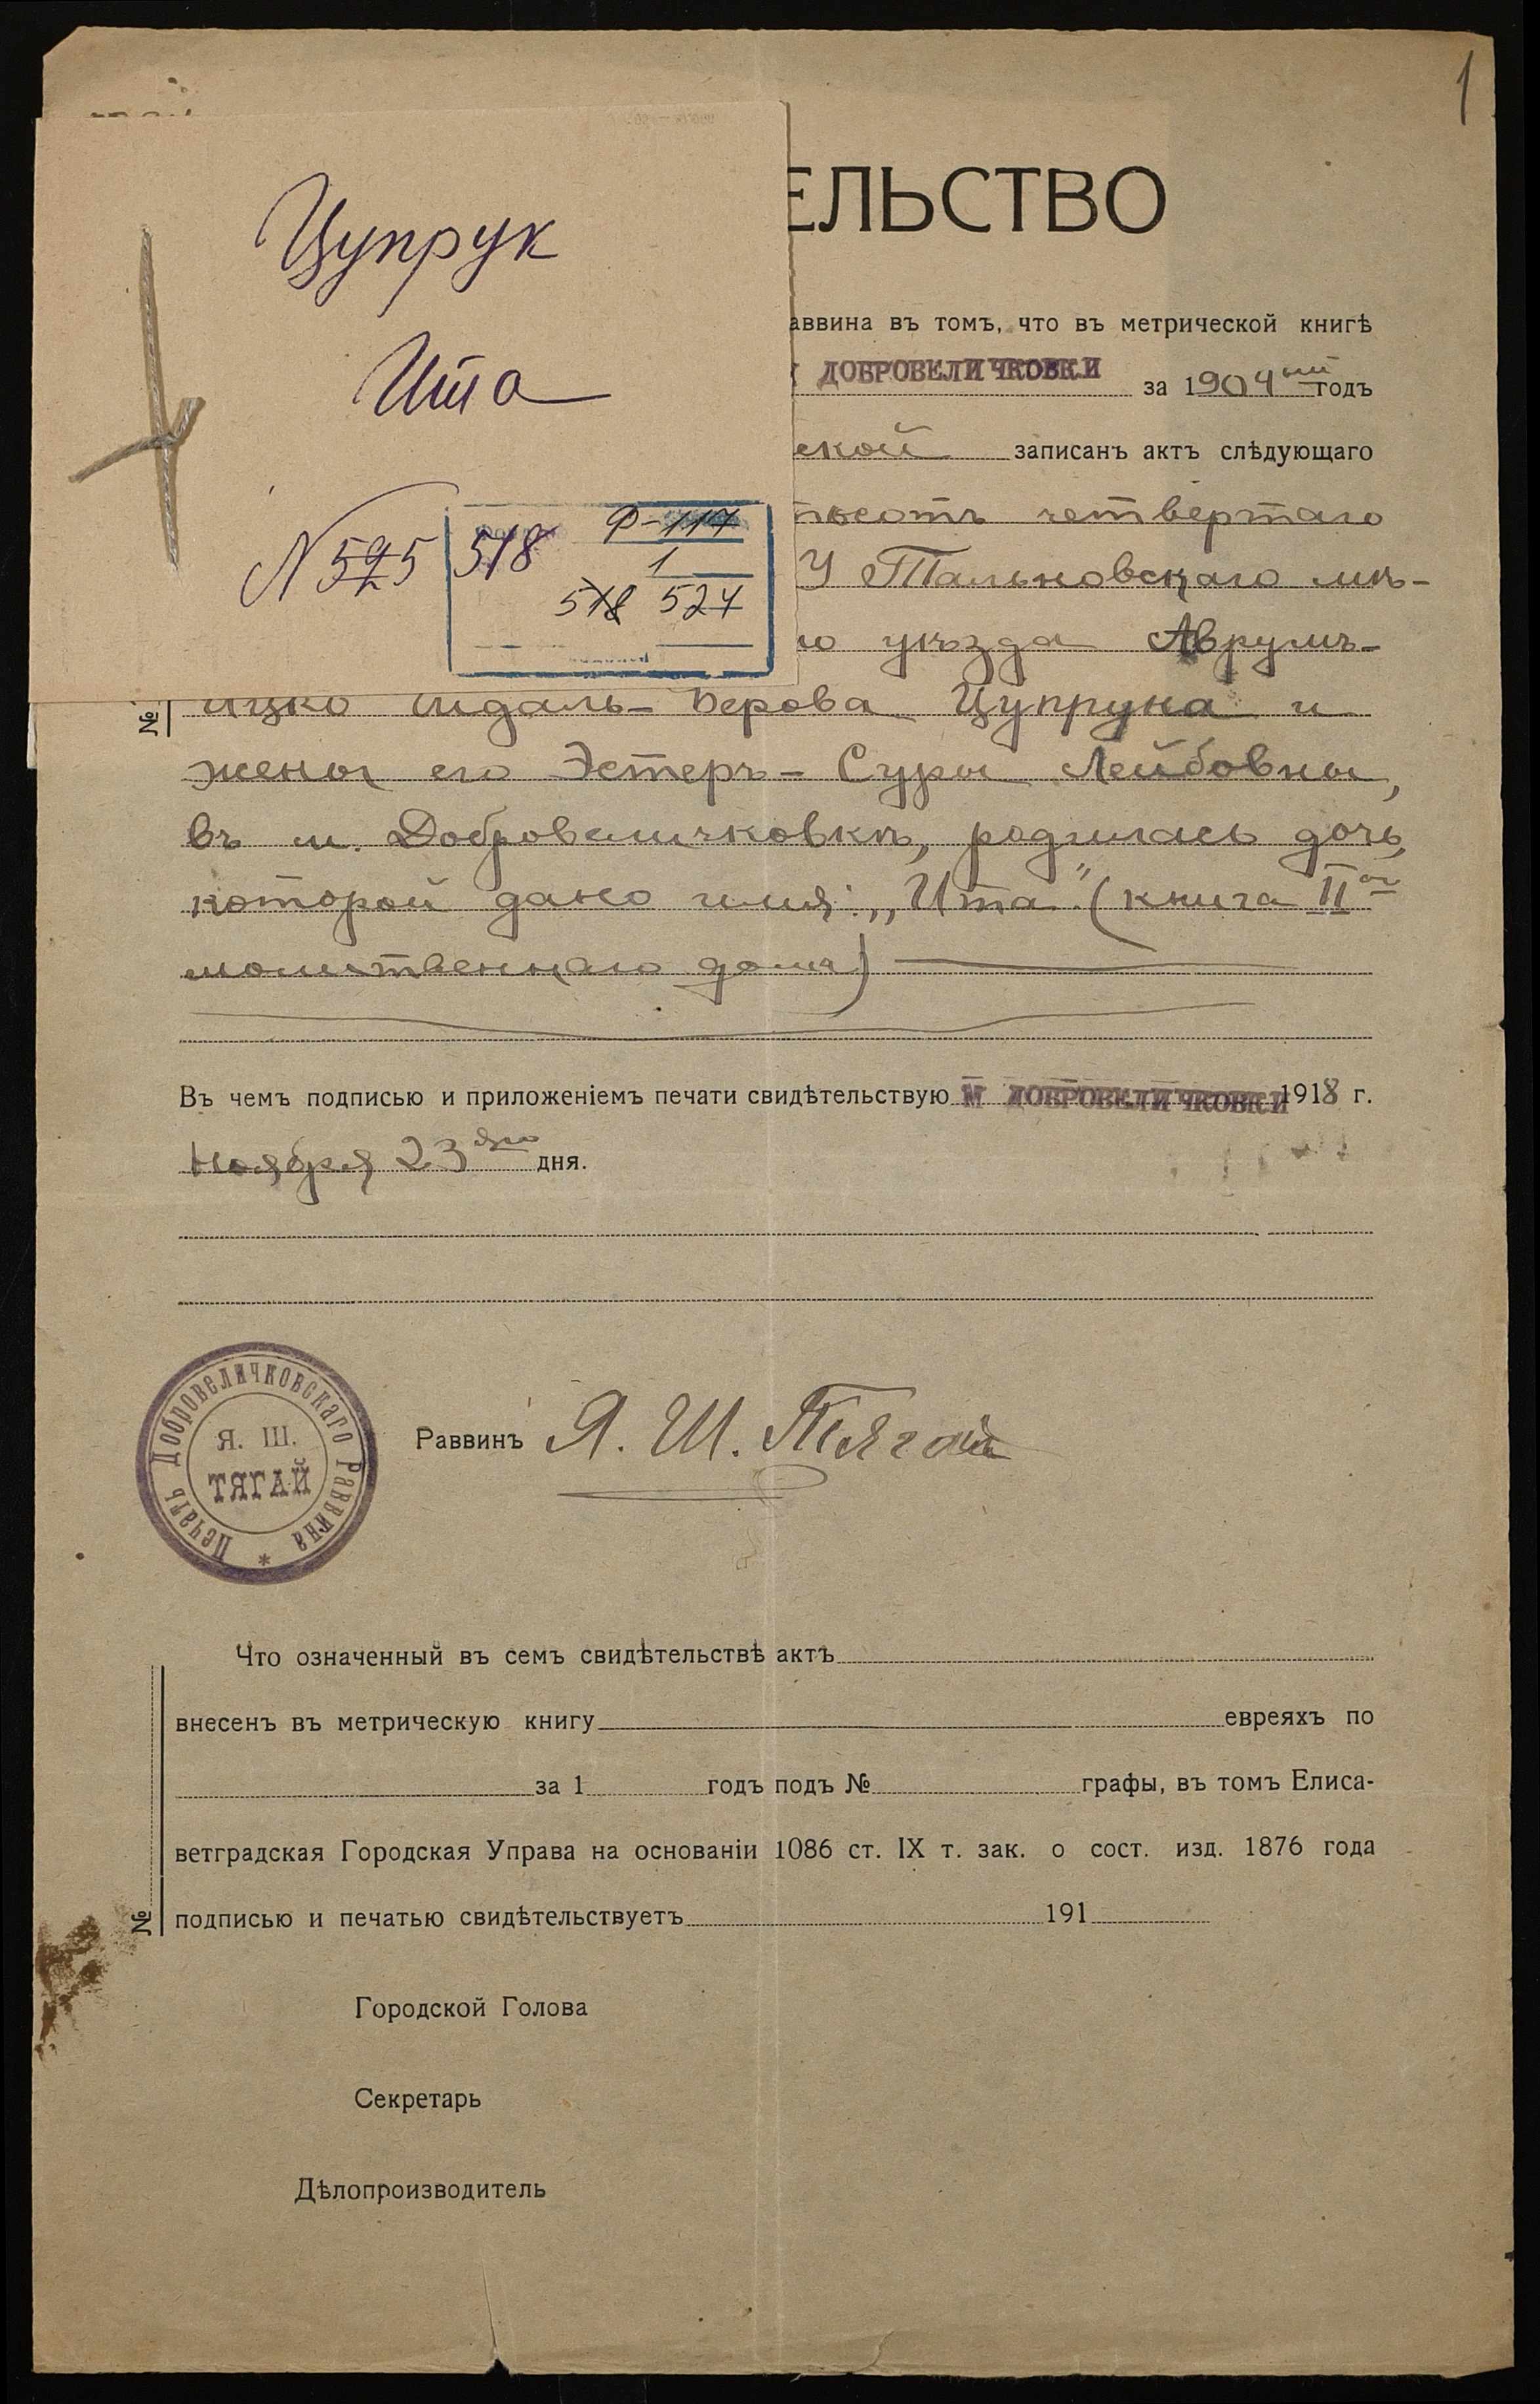 1
Цупрук
Ита
N 525 518
Ф-117
1
518 524
ЕЛЬСТВО
аввина въ томъ, что въ метрической книгѣ
ДОБРОВЕЛИЧКОВКИ за 1904 ый годъ
ской записанъ актъ слѣдующаго
тьсотъ четвертаго
У Тальновскаго мѣ-
го уѣзда Аврумъ-
Ицко Идаль-Берова Цупрука и
жены его Эстеръ-Суры Лейбовны,
въ м. Добровеличковкѣ, родилась дочь,
которой дано имя: „Ита" (книга II ая
молитвеннаго дома)
№
Въ чемъ подписью и приложеніемъ печати свидѣтельствую М ДОБРОВЕЛИЧКОВКИ 1918 г.
Ноября 23 дня.
Печать Добровеличковскаго Раввина *
Я. Ш.
ТЯГАЙ
Раввинъ Я. Ш. Тягай
Что означенный въ семъ свидѣтельствѣ актъ
внесенъ въ метрическую книгу евреяхъ по
за 1 годъ подъ № графы, въ томъ Елиса-
ветградская Городская Управа на основаніи 1086 ст. IX т. зак. о сост. изд. 1876 года
подписью и печатью свидѣтельствуетъ 191
№
Городской Голова
Секретарь
Дѣлопроизводитель